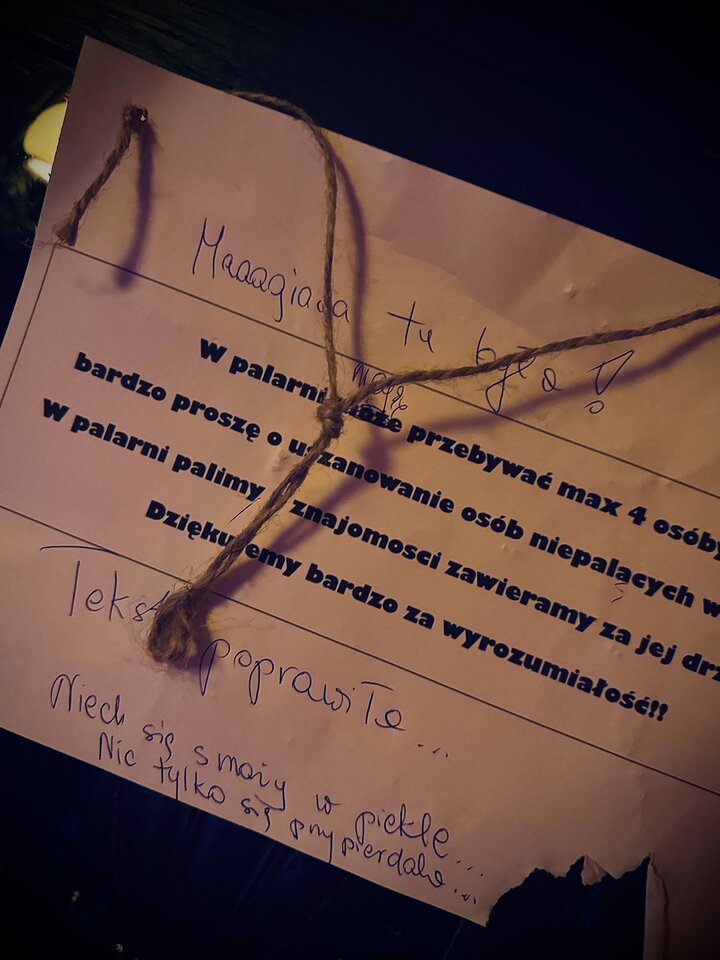 tu była !
mogą
W palarni może przebywać max 4 osoby
bardzo proszę o uszanowanie osób niepalących w
W palarni palimy znajomosci zawieramy za jej drz
Dziękujemy bardzo za wyrozumiałość!!
Tekst poprawiła...
Niech się smaży w piekle...
Nic tylko się przypierdala...